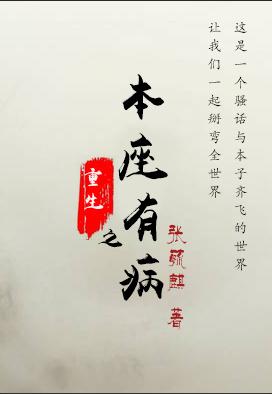 这是一个骚话与本子齐飞的世界
让我们一起掰弯全世界
重生
之
本座有病
张毓麒 著